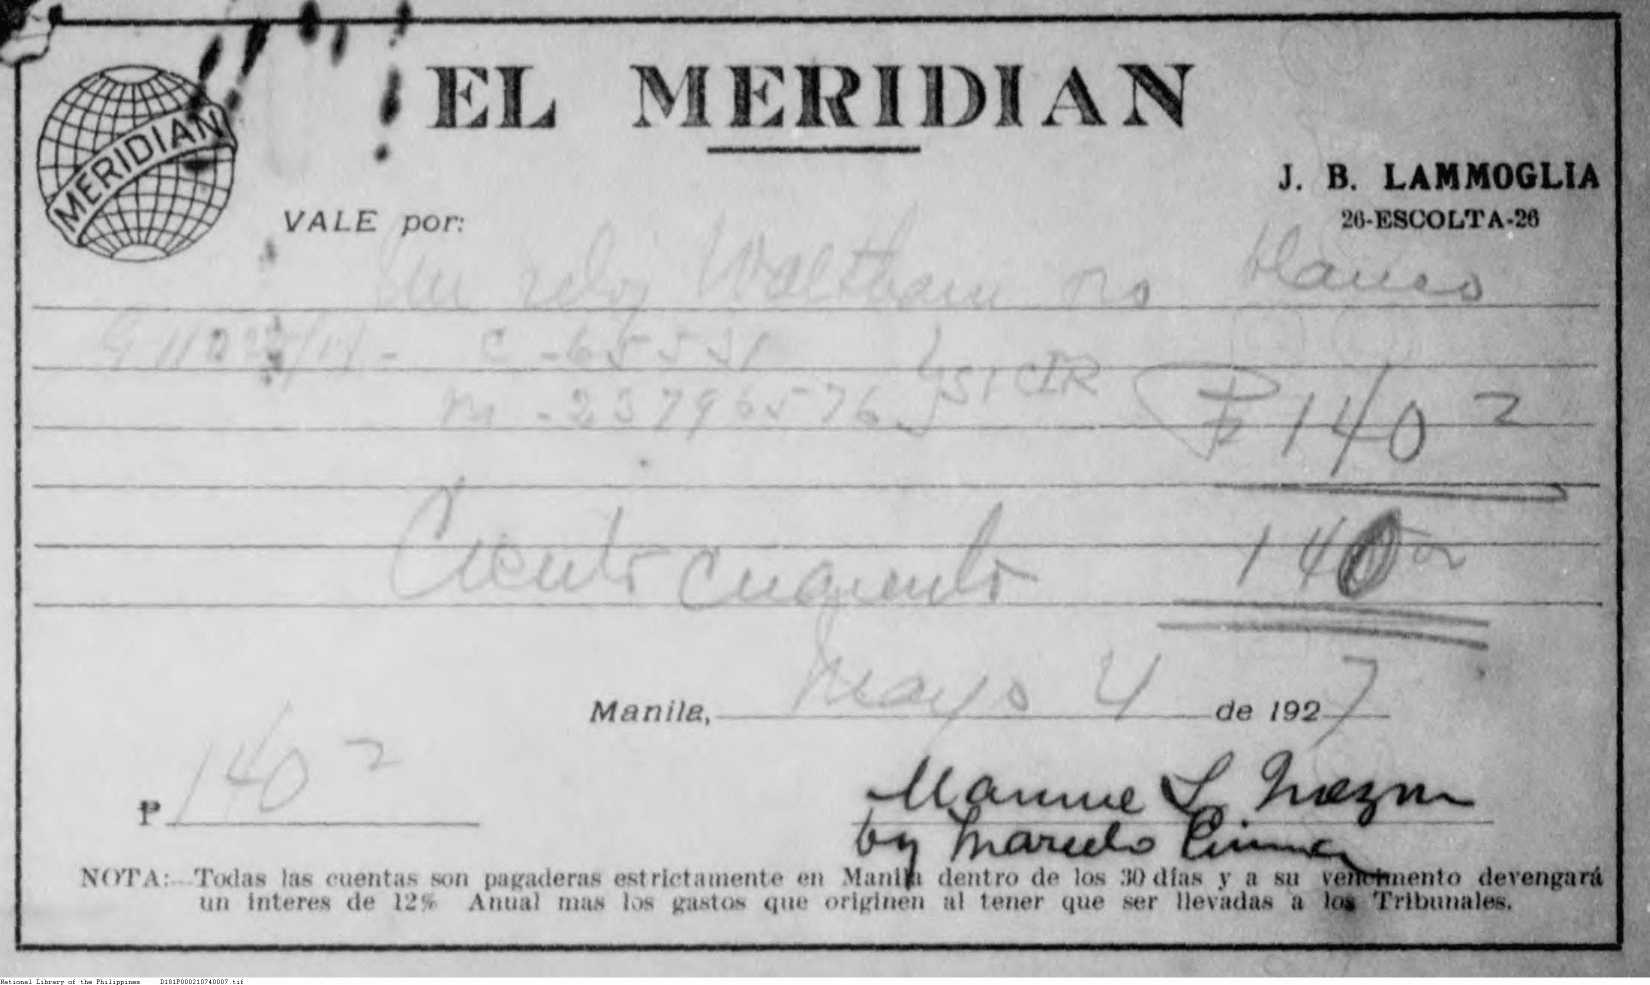 EL MERIDIAN
MERIDIAN
J. B. LAMMOGLIA
26-ESCOLTA-26
VALE por:
Un reloj Waltham oro blanco
C - 65531
m - 23796576 } 51 CIR ₱ 140
Ciento cuarenta 140
Manila, Mayo 4 de 1927
₱ 140
by Marcelo
NOTA:- Todas las cuentas son pagaderas estrictamente en Manila dentro de los 30 días y a su vencimento devengará
un interes de 12% Anual mas los gastos que originen al tener que ser llevadas a los Tribunales.
National Library of the Philippines D101P000210740007.tif